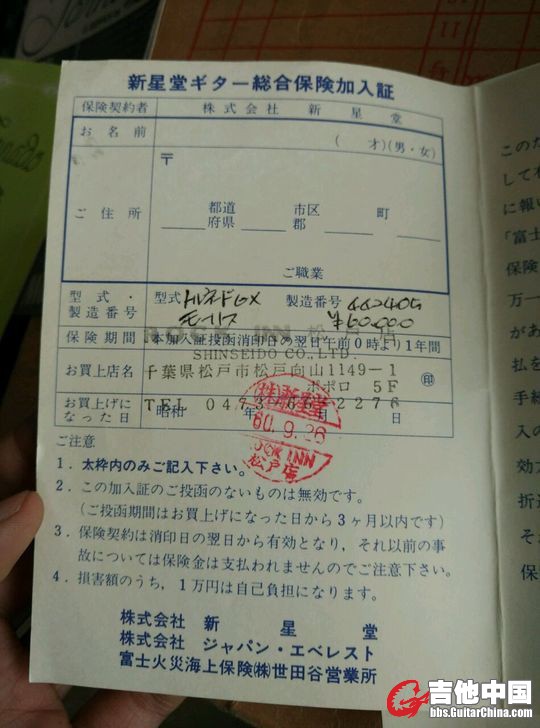 新星堂ギター総合保険加入証
保険契約者 株式会社 新 星 堂
お 名 前
( 才)(男・女)
〒
ご 住 所
都道 市区 町
府県 郡
ご職業
型式・ 型式 トルネードGX 製造番号 442405
製造番号 モーリス ¥60,000
ROCK INN 松戸店
保険期間 本加入証投函消印日の翌日午前0時より1年間
SHINSEIDO CO.,LTD.
お買上店名 千葉県松戸市松戸向山1149-1 印
ポポロ 5F
お買上げに TEL 0473 2276
なった日 昭和 年 月 日
㈱新星堂
60.9.26
ROCK INN
松戸店
ご注意
1. 太枠内のみご記入下さい。
2. この加入証のご投函のないものは無効です。
(ご投函期間はお買上げになった日から3ヶ月以内です)
3. 保険契約は消印日の翌日から有効となり, それ以前の事
故については保険金は支払われませんのでご注意下さい。
4. 損害額のうち, 1万円は自己負担になります。
株式会社 新 星 堂
株式会社 ジャパン・エベレスト
富士火災海上保険㈱世田谷営業所
このた
して
に報い
「富士
保険
万一
があ
払を
手続
入の
効力
折返
それ
保
吉他中国
bbs.GuitarChina.com